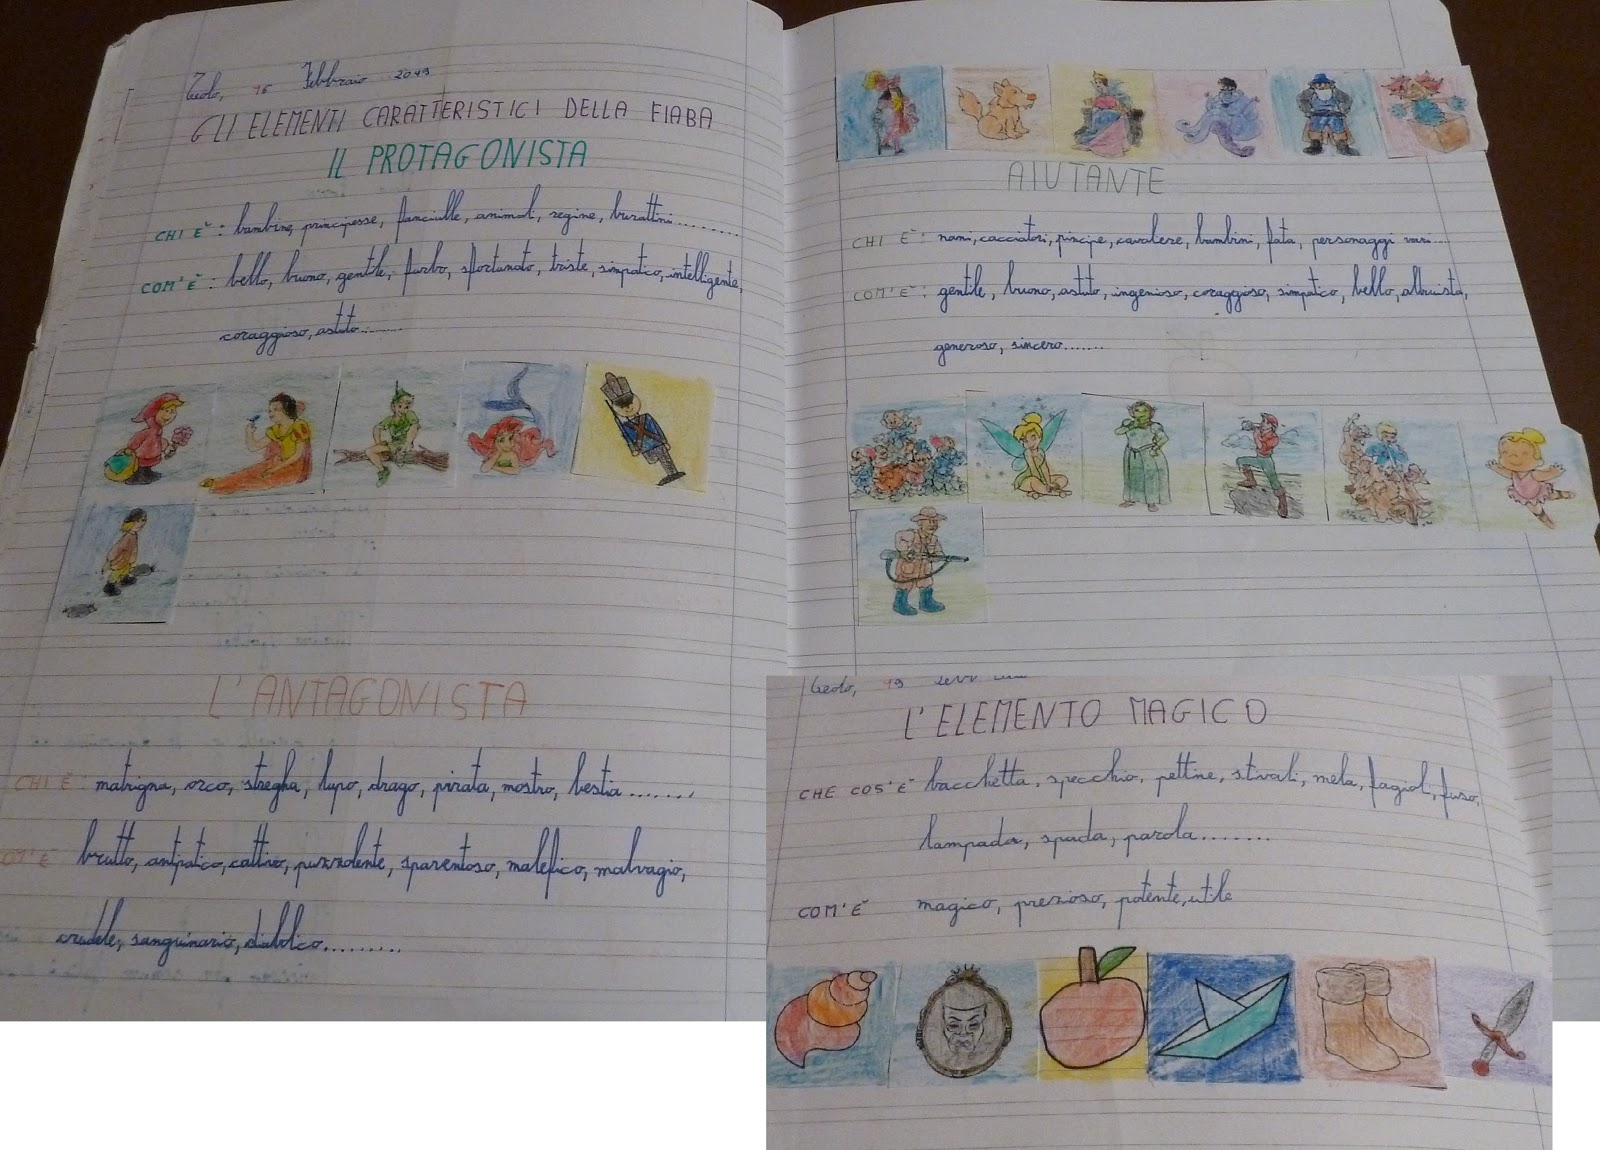 Teolo, 16 Febbraio 2019
GLI ELEMENTI CARATTERISTICI DELLA FIABA
IL PROTAGONISTA
CHI È: bambine, principesse, fanciulle, animali, regine, burattini.........
COM'È: bello, buono, gentile, furbo, sfortunato, triste, simpatico, intelligente,
coraggioso, astuto.........
L'ANTAGONISTA
CHI È: matrigna, orco, strega, lupo, drago, pirata, mostro, bestia.......
COM'È brutto, antipatico, cattivo, puzzolente, spaventoso, malefico, malvagio,
crudele, sanguinario, diabolico.........
AIUTANTE
CHI È: nani, cacciatori, principe, cavaliere, bambini, fata, personaggi vari....
COM'È: gentile, buono, astuto, ingenioso, coraggioso, simpatico, bello, altruista,
generoso, sincero.......
Teolo, 19
L'ELEMENTO MAGICO
CHE COS'È bacchetta, specchio, pettine, stivali, mela, fagioli, fuso,
lampada, spada, parola........
COM'È magico, prezioso, potente, utile